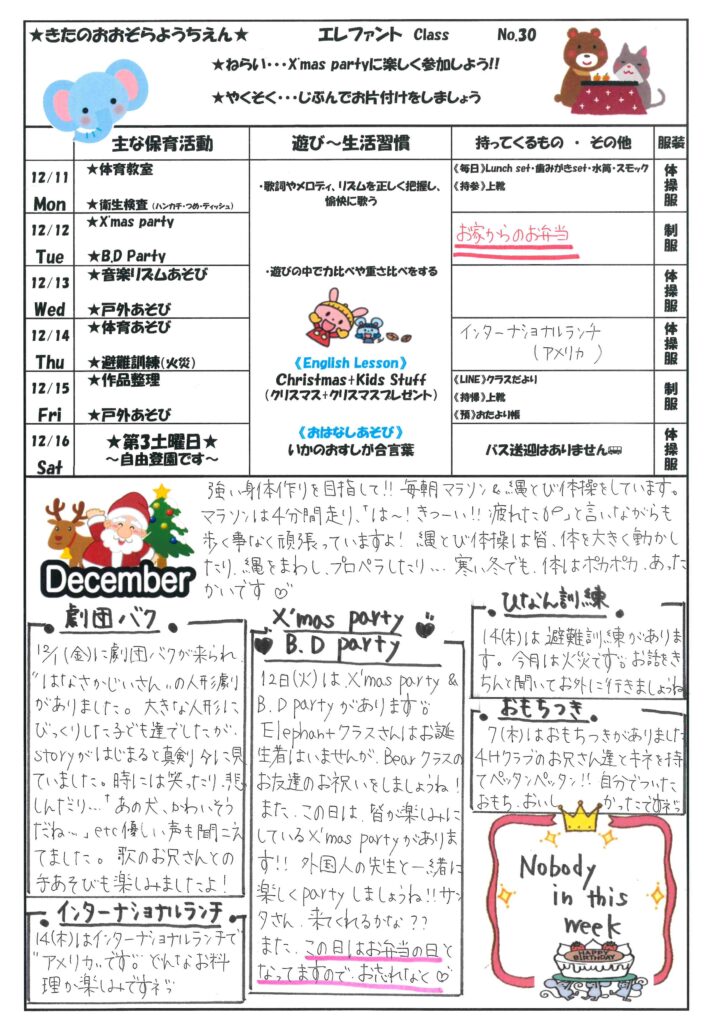 ★きたのおおぞらようちえん★ エレファント Class No.30
★ねらい・・・X'mas partyに楽しく参加しよう!!
★やくそく・・・じぶんでお片付けをしましょう
主な保育活動 遊び～生活習慣 持ってくるもの ・ その他 服装
12/11 Mon
★体育教室
★衛生検査 (ハンカチ・つめ・ティッシュ)
・歌詞やメロディ、リズムを正しく把握し、
愉快に歌う
《毎日》Lunch set・歯みがきset・水筒・スモック
《持参》上靴
体操服
12/12 Tue
★X'mas party
★B,D Party
お家からのお弁当
制服
12/13 Wed
★音楽リズムあそび
★戸外あそび
・遊びの中で力比べや重さ比べをする
体操服
12/14 Thu
★体育あそび
★避難訓練(火災)
《English Lesson》
Christmas+Kids Stuff
(クリスマス+クリスマスプレゼント)
インターナショナルランチ
(アメリカ)
体操服
12/15 Fri
★作品整理
★戸外あそび
《LINE》クラスだより
《持帰》上靴
《預》おたより帳
制服
12/16 Sat
★第3土曜日★
～自由登園です～
《おはなしあそび》
いかのおすしが合言葉
バス送迎はありません
体操服
December
強い身体作りを目指して!! 毎朝マラソン&縄とび体操をしています。
マラソンは4分間走り、「は～!きつーい!!疲れた」と言いながらも
歩く事なく頑張っていますよ! 縄とび体操は皆、体を大きく動かし
たり、縄をまわし、プロペラしたり… 寒い冬でも、体はポカポカ、あった
かいです♡
劇団バク
12/1(金)に劇団バクが来られ、
"はなさかじいさん"の人形劇
がありました。大きな人形に
びっくりした子ども達でしたが、
storyがはじまると真剣に見
ていました。時には笑ったり、悲
しんだり…「あの犬、かわいそう
だね…」etc優しい声も聞こえ
てました。歌のお兄さんとの
手あそびも楽しみましたよ!
インターナショナルランチ
14(木)はインターナショナルランチで
"アメリカ"です。どんなお料
理か楽しみですネ
X'mas party
B.D party
12日(火)は、X'mas party &
B.D partyがあります。
Elephantクラスさんはお誕
生者はいませんが、Bearクラスの
お友達のお祝いをしましょうね!
また、この日は、皆が楽しみに
しているX'mas partyがありま
す!! 外国人の先生と一緒に
楽しくpartyしましょうね!!サン
タさん、来てくれるかな??
また、この日はお弁当の日と
なってますので、お忘れなく♡
ひなん訓練
14(木)は避難訓練がありま
す。今月は火災です。お話をき
ちんと聞いてお外に行きましょうね
おもちつき
7(木)はおもちつきがありました
4Hクラブのお兄さん達とキネを持
てペッタンペッタン!! 自分でついた
おもち、おいしかったですネ
Nobody
in this
week
HAPPY
BIRTHDAY